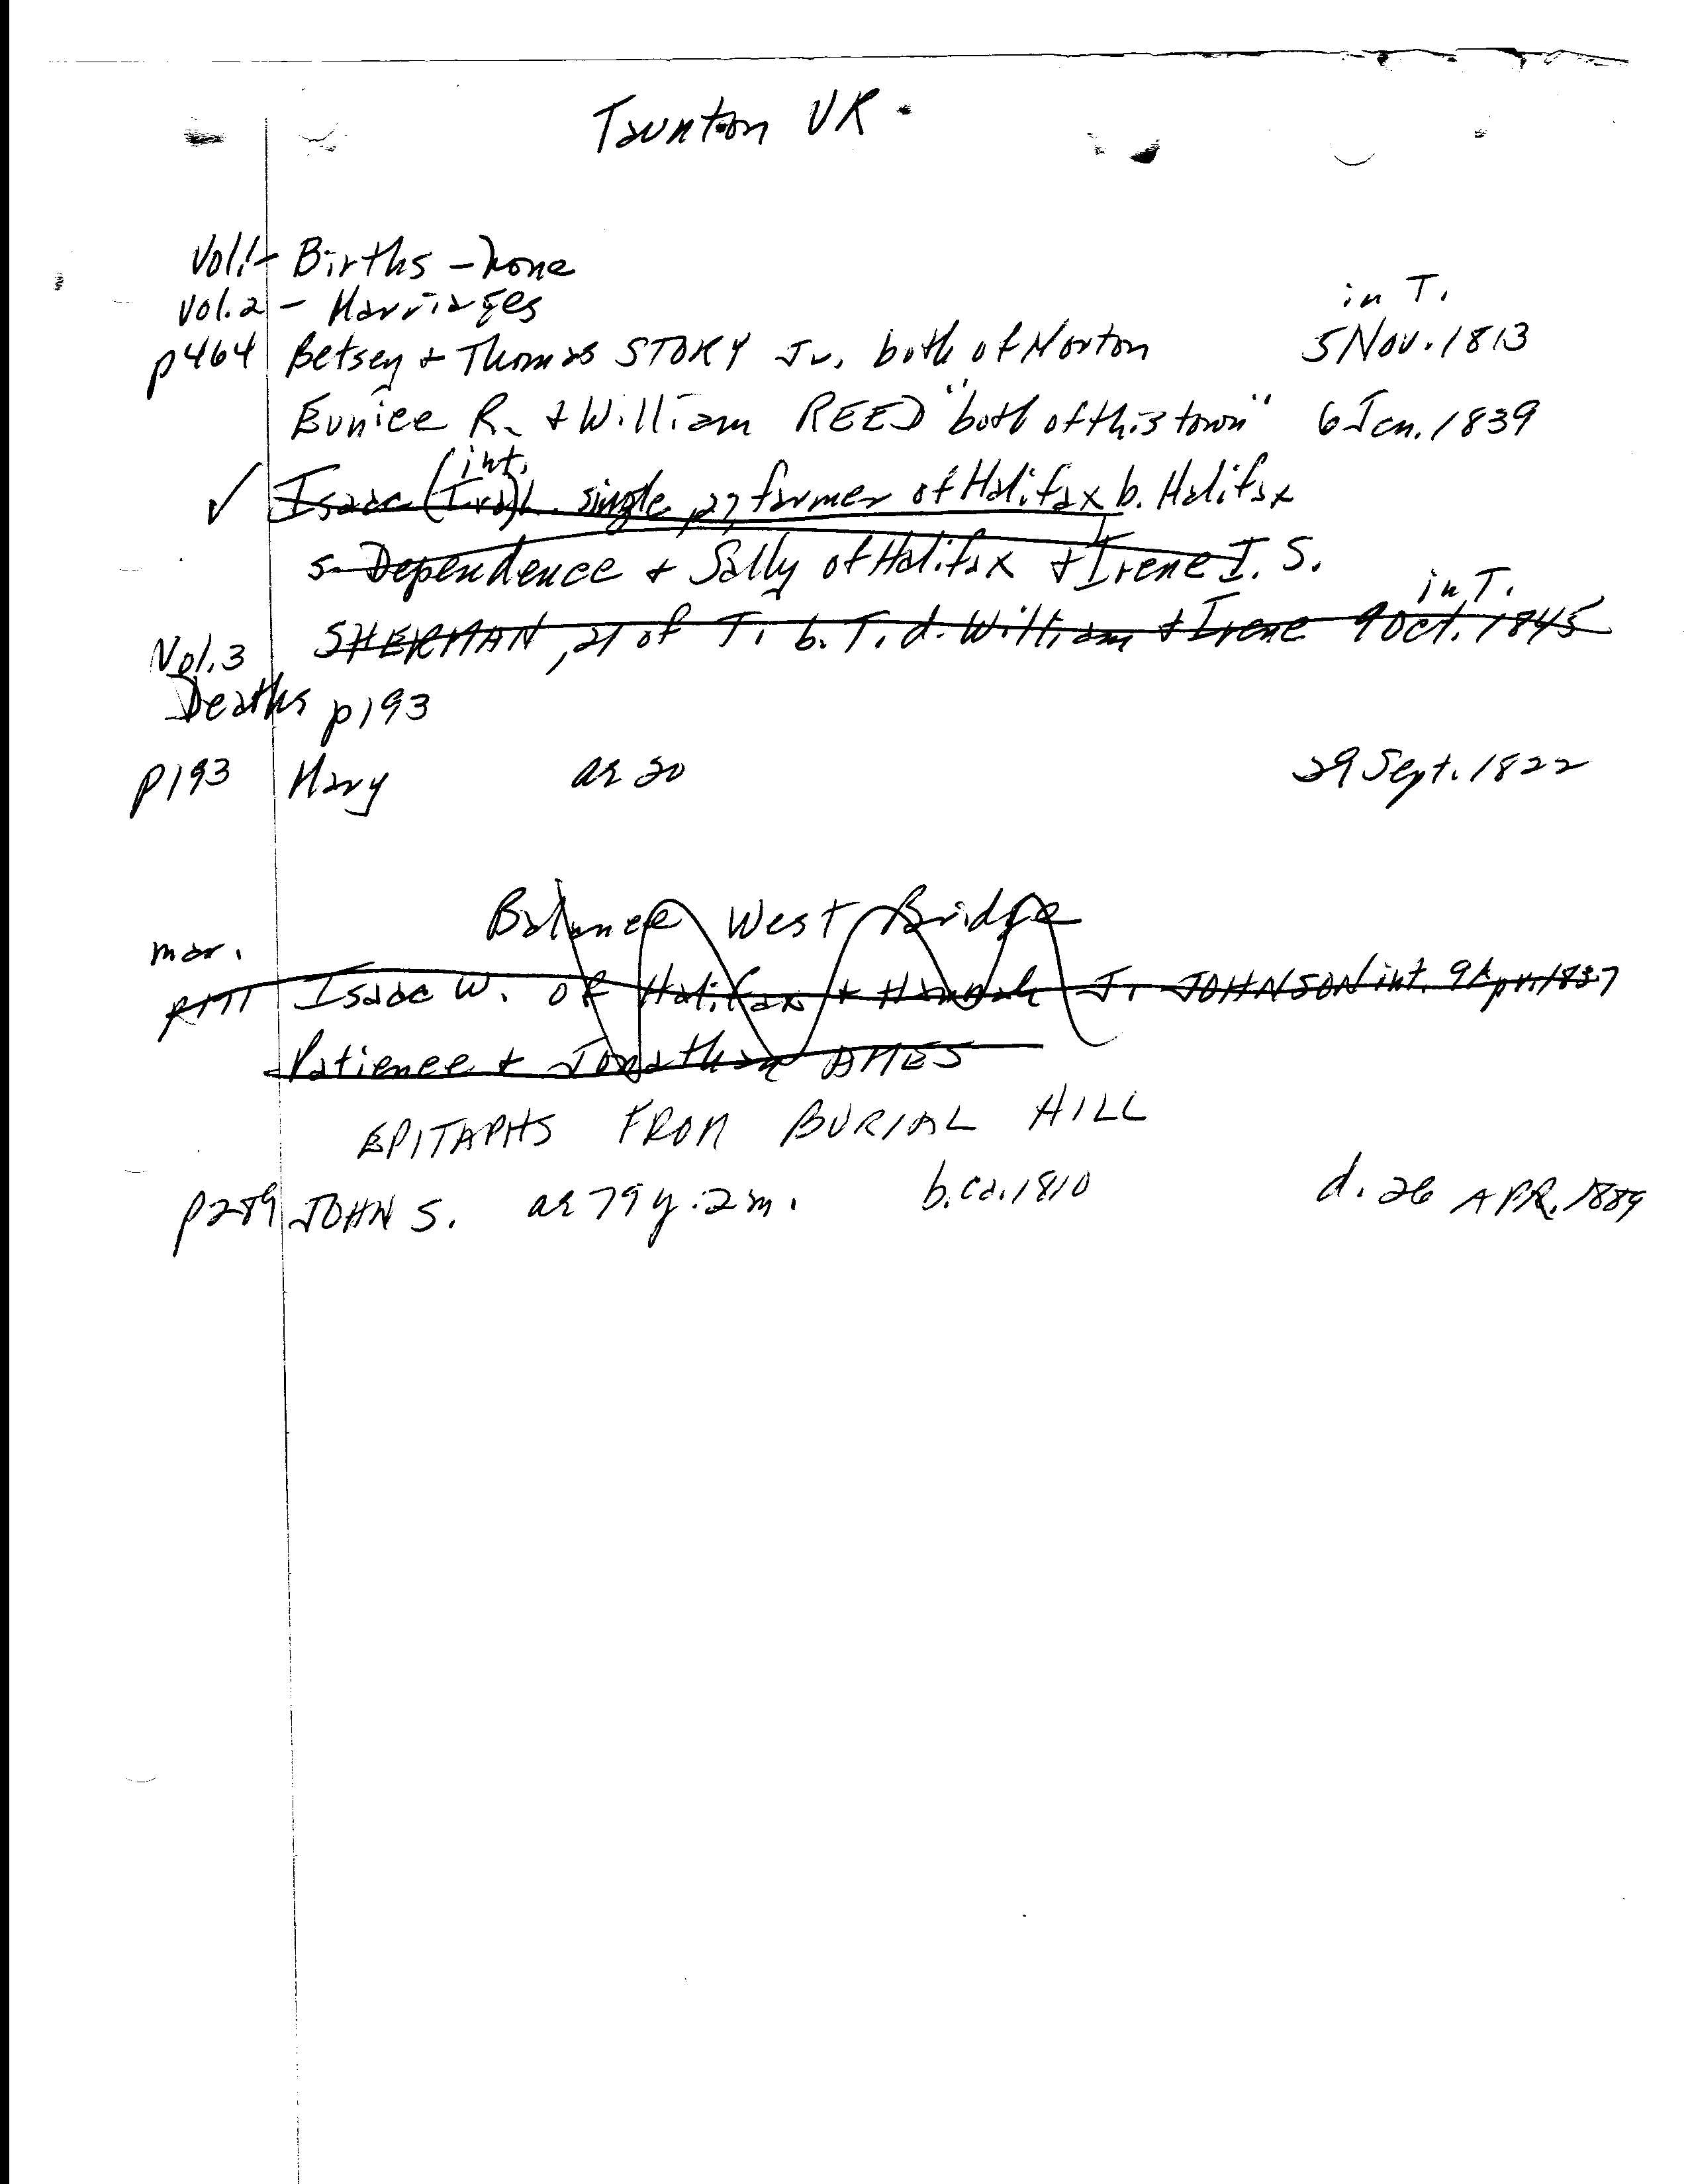 Taunton VR.
Vol. 1 - Births - none
Vol. 2 - Marriages
in T.
p464 Betsey + Thomas STORY Jr. both of Norton 5 Nov. 1813
Eunice R. + William REED "both of this town" 6 Jan. 1839
(int.
✓ Isaac (Ira) L. single, 27, farmer of Halifax b. Halifax
s. Dependence + Sally of Halifax + Irene I. S.
in T.
SHERMAN, 21 of T. b. T. d. William + Irene 9 Oct. 1845
Vol. 3
Deaths p193
p193 Mary ae 20 29 Sept. 1822
Balance West Bridge
mar.
p111 Isaac W. of Halifax + Hannah J. JOHNSON int. 9 Apr. 1837
Patience + Jonathan AMES
EPITAPHS FROM BURIAL HILL
p289 JOHN S. ae 79 y. 2 m. b. ca. 1810 d. 26 APR. 1889